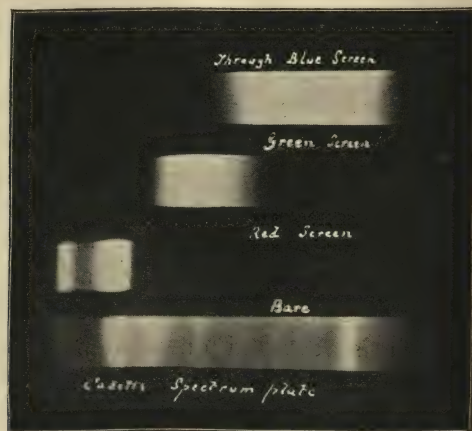 Through Blue Screen
Green Screen
Red Screen
Bare
Cadett Spectrum plate